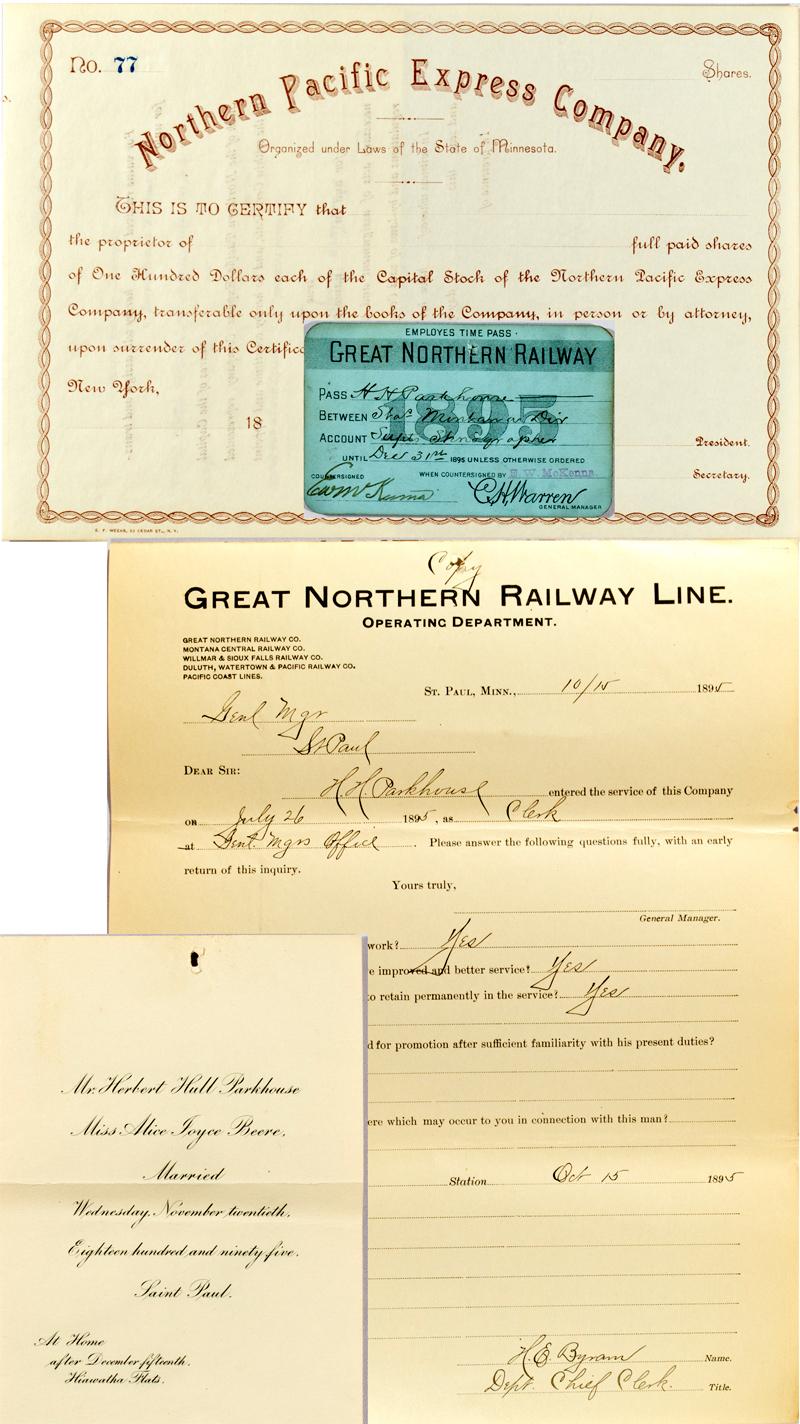 No. 77
Shares.
Northern Pacific Express Company.
Organized under Laws of the State of Minnesota.
THIS IS TO CERTIFY that
the proprietor of full paid shares
of One Hundred Dollars each of the Capital Stock of the Northern Pacific Express
Company, transferable only upon the books of the Company, in person or by attorney,
upon surrender of this Certific
New York,
18
President.
Secretary.
E. F. WEEKS, 53 CEDAR ST., N. Y.
EMPLOYES TIME PASS.
GREAT NORTHERN RAILWAY
1895
PASS H H Parkhouse
BETWEEN Stas Montana Div
ACCOUNT Supts Stenographer
UNTIL Dec 31st 1895 UNLESS OTHERWISE ORDERED
COUNTERSIGNED WHEN COUNTERSIGNED BY E. W. McKenna
C. H. Warren
GENERAL MANAGER
Copy
GREAT NORTHERN RAILWAY LINE.
OPERATING DEPARTMENT.
GREAT NORTHERN RAILWAY CO.
MONTANA CENTRAL RAILWAY CO.
WILLMAR & SIOUX FALLS RAILWAY CO.
DULUTH, WATERTOWN & PACIFIC RAILWAY CO.
PACIFIC COAST LINES.
ST. PAUL, MINN., 10/15 1895
Genl Mgr
St Paul
DEAR SIR:
H. H. Parkhouse entered the service of this Company
on July 26 1895, as Clerk
at Genl. Mgrs Office. Please answer the following questions fully, with an early
return of this inquiry.
Yours truly,
General Manager.
work? Yes
e improved and better service? Yes
to retain permanently in the service? Yes
d for promotion after sufficient familiarity with his present duties?
ere which may occur to you in connection with this man?
Station Oct 15 1895
H. E. Byram Name.
Dept. Chief Clerk. Title.
Mr. Herbert Hull Parkhouse
Miss Alice Joyce Beere,
Married
Wednesday, November twentieth,
Eighteen hundred and ninety-five,
Saint Paul.
At Home
after December fifteenth,
Hiawatha Flats.